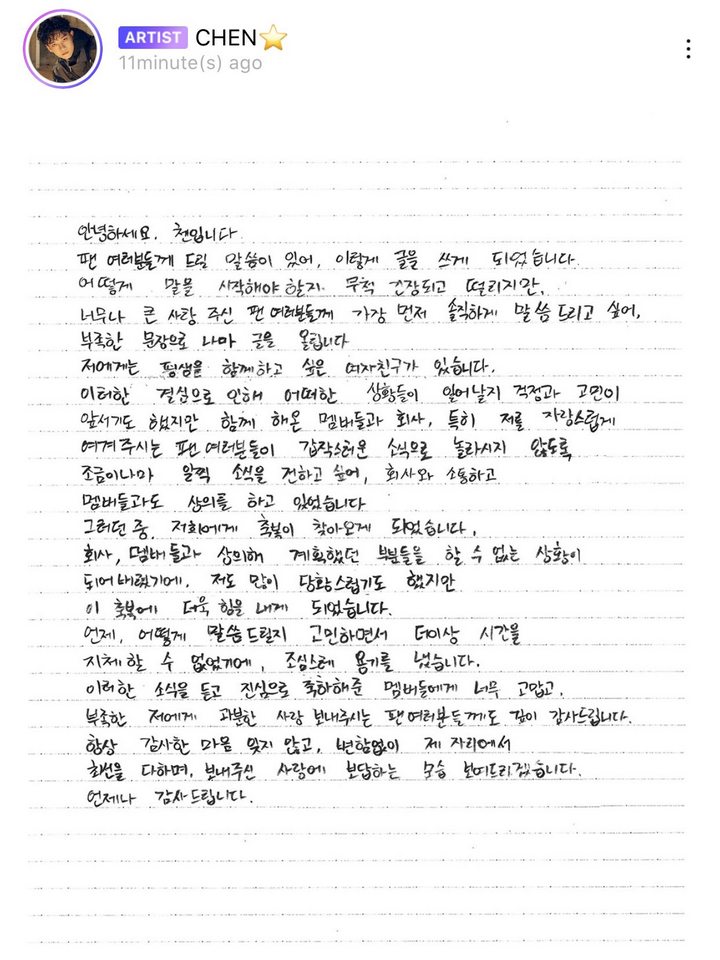 ARTIST CHEN⭐
11minute(s) ago
안녕하세요. 첸입니다.
팬 여러분들께 드릴 말씀이 있어, 이렇게 글을 쓰게 되었습니다.
어떻게 말을 시작해야 할지 무척 긴장되고 떨리지만,
너무나 큰 사랑 주신 팬 여러분들께 가장 먼저 솔직하게 말씀드리고 싶어,
부족한 문장으로 나마 글을 올립니다
저에게는 평생을 함께하고 싶은 여자친구가 있습니다.
이러한 결심으로 인해 어떠한 상황들이 일어날지 걱정과 고민이
앞서기도 했지만 함께 해온 멤버들과 회사, 특히 저를 자랑스럽게
여겨 주시는 팬 여러분들이 갑작스러운 소식으로 놀라시지 않도록
조금이나마 일찍 소식을 전하고 싶어, 회사와 소통하고
멤버들과도 상의를 하고 있었습니다
그러던 중, 저희에게 축복이 찾아오게 되었습니다.
회사, 멤버들과 상의해 계획했던 부분들을 할 수 없는 상황이
되어버렸기에, 저도 많이 당황스럽기도 했지만
이 축복에 더욱 힘을 내게 되었습니다.
언제, 어떻게 말씀드릴지 고민하면서 더이상 시간을
지체할 수 없었기에, 조심스레 용기를 냈습니다.
이러한 소식을 듣고 진심으로 축하해준 멤버들에게 너무 고맙고,
부족한 저에게 과분한 사랑 보내주시는 팬 여러분들께도 깊이 감사드립니다.
항상 감사한 마음 잊지 않고, 변함없이 제 자리에서
최선을 다하며, 보내주신 사랑에 보답하는 모습 보여드리겠습니다.
언제나 감사드립니다.